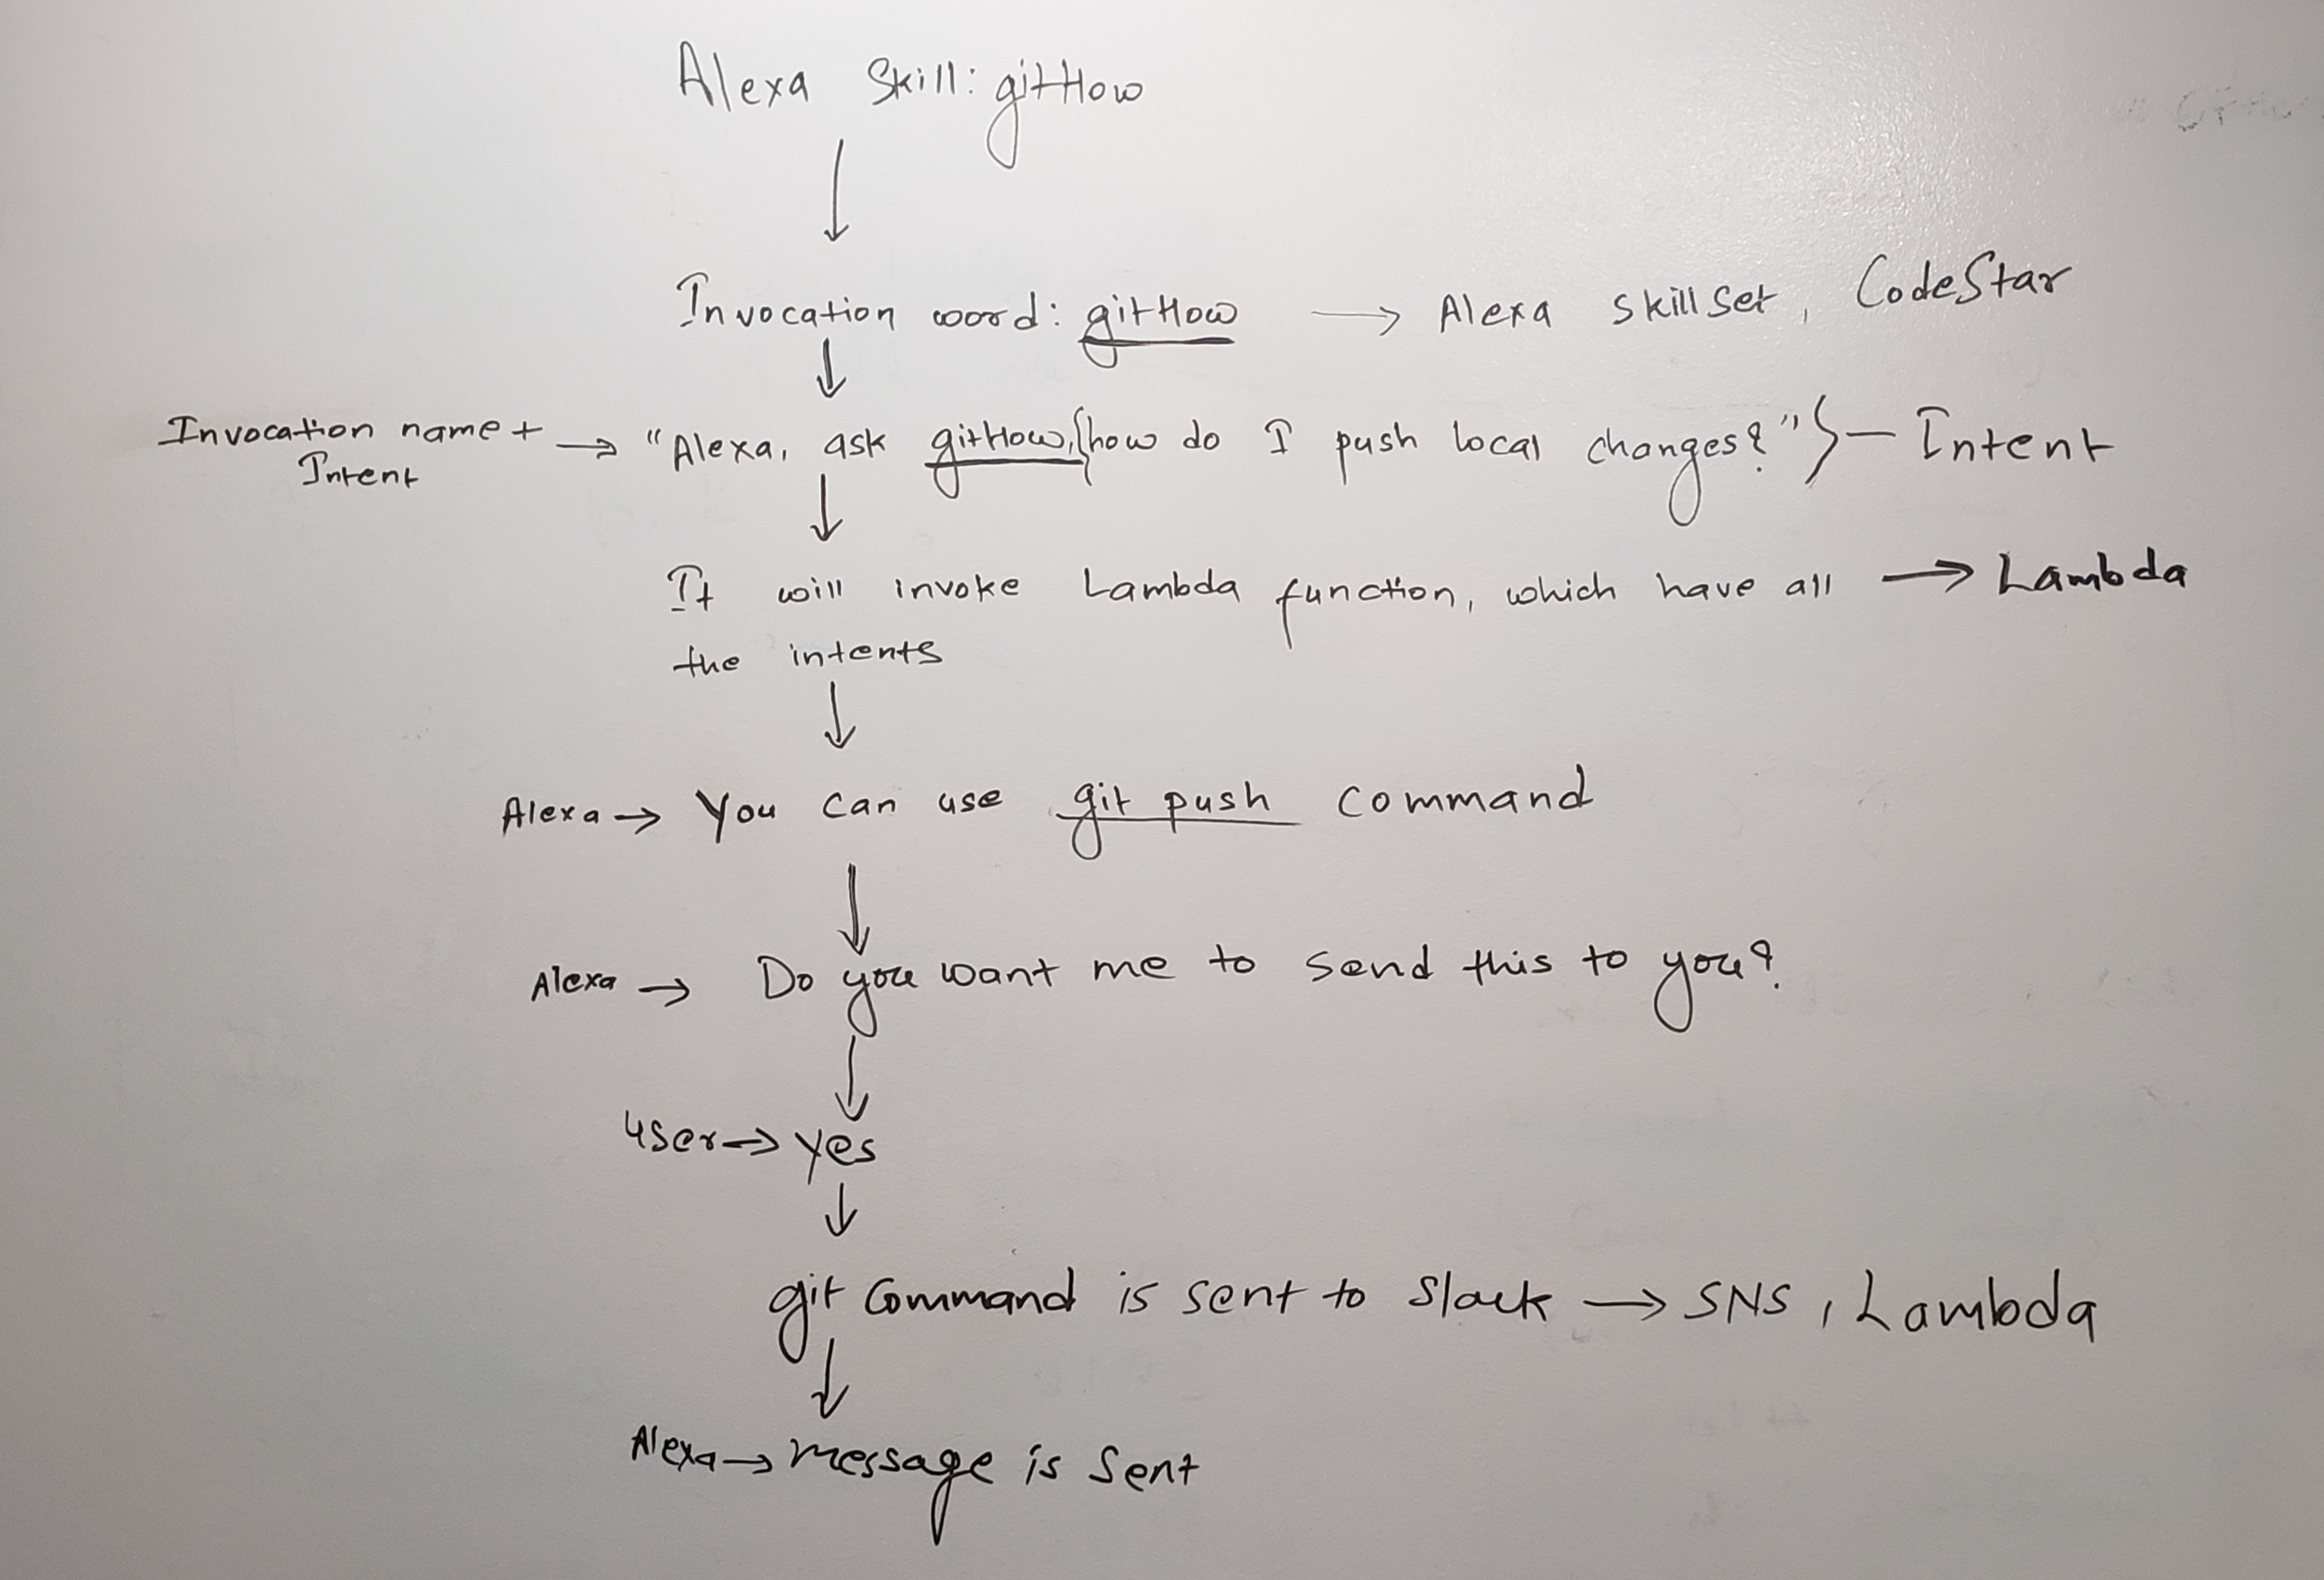 Alexa Skill: gitHow
↓
Invocation word: gitHow → Alexa skillset, CodeStar
↓
Invocation name + Intent → "Alexa, ask gitHow, {how do I push local changes?"} — Intent
↓
It will invoke Lambda function, which have all → Lambda
the intents
↓
Alexa → You can use git push command
↓
Alexa → Do you want me to send this to you?
↓
User → yes
↓
git Command is sent to Slack → SNS, Lambda
↓
Alexa → Message is sent